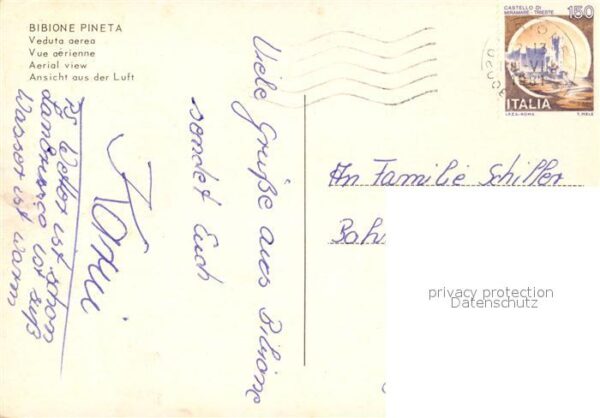 BIBIONE PINETA
Veduta aerea
Vue aérienne
Aerial view
Ansicht aus der Luft
CASTELLO DI
MIRAMARE - TRIESTE
150
ITALIA
I.P.Z.S. - ROMA
Viele Grüße aus Bibione
sendet Euch
PS Wetter ist schön
Lambrusco ist süß
Wasser ist warm
An Familie Schiller
Bah
privacy protection
Datenschutz